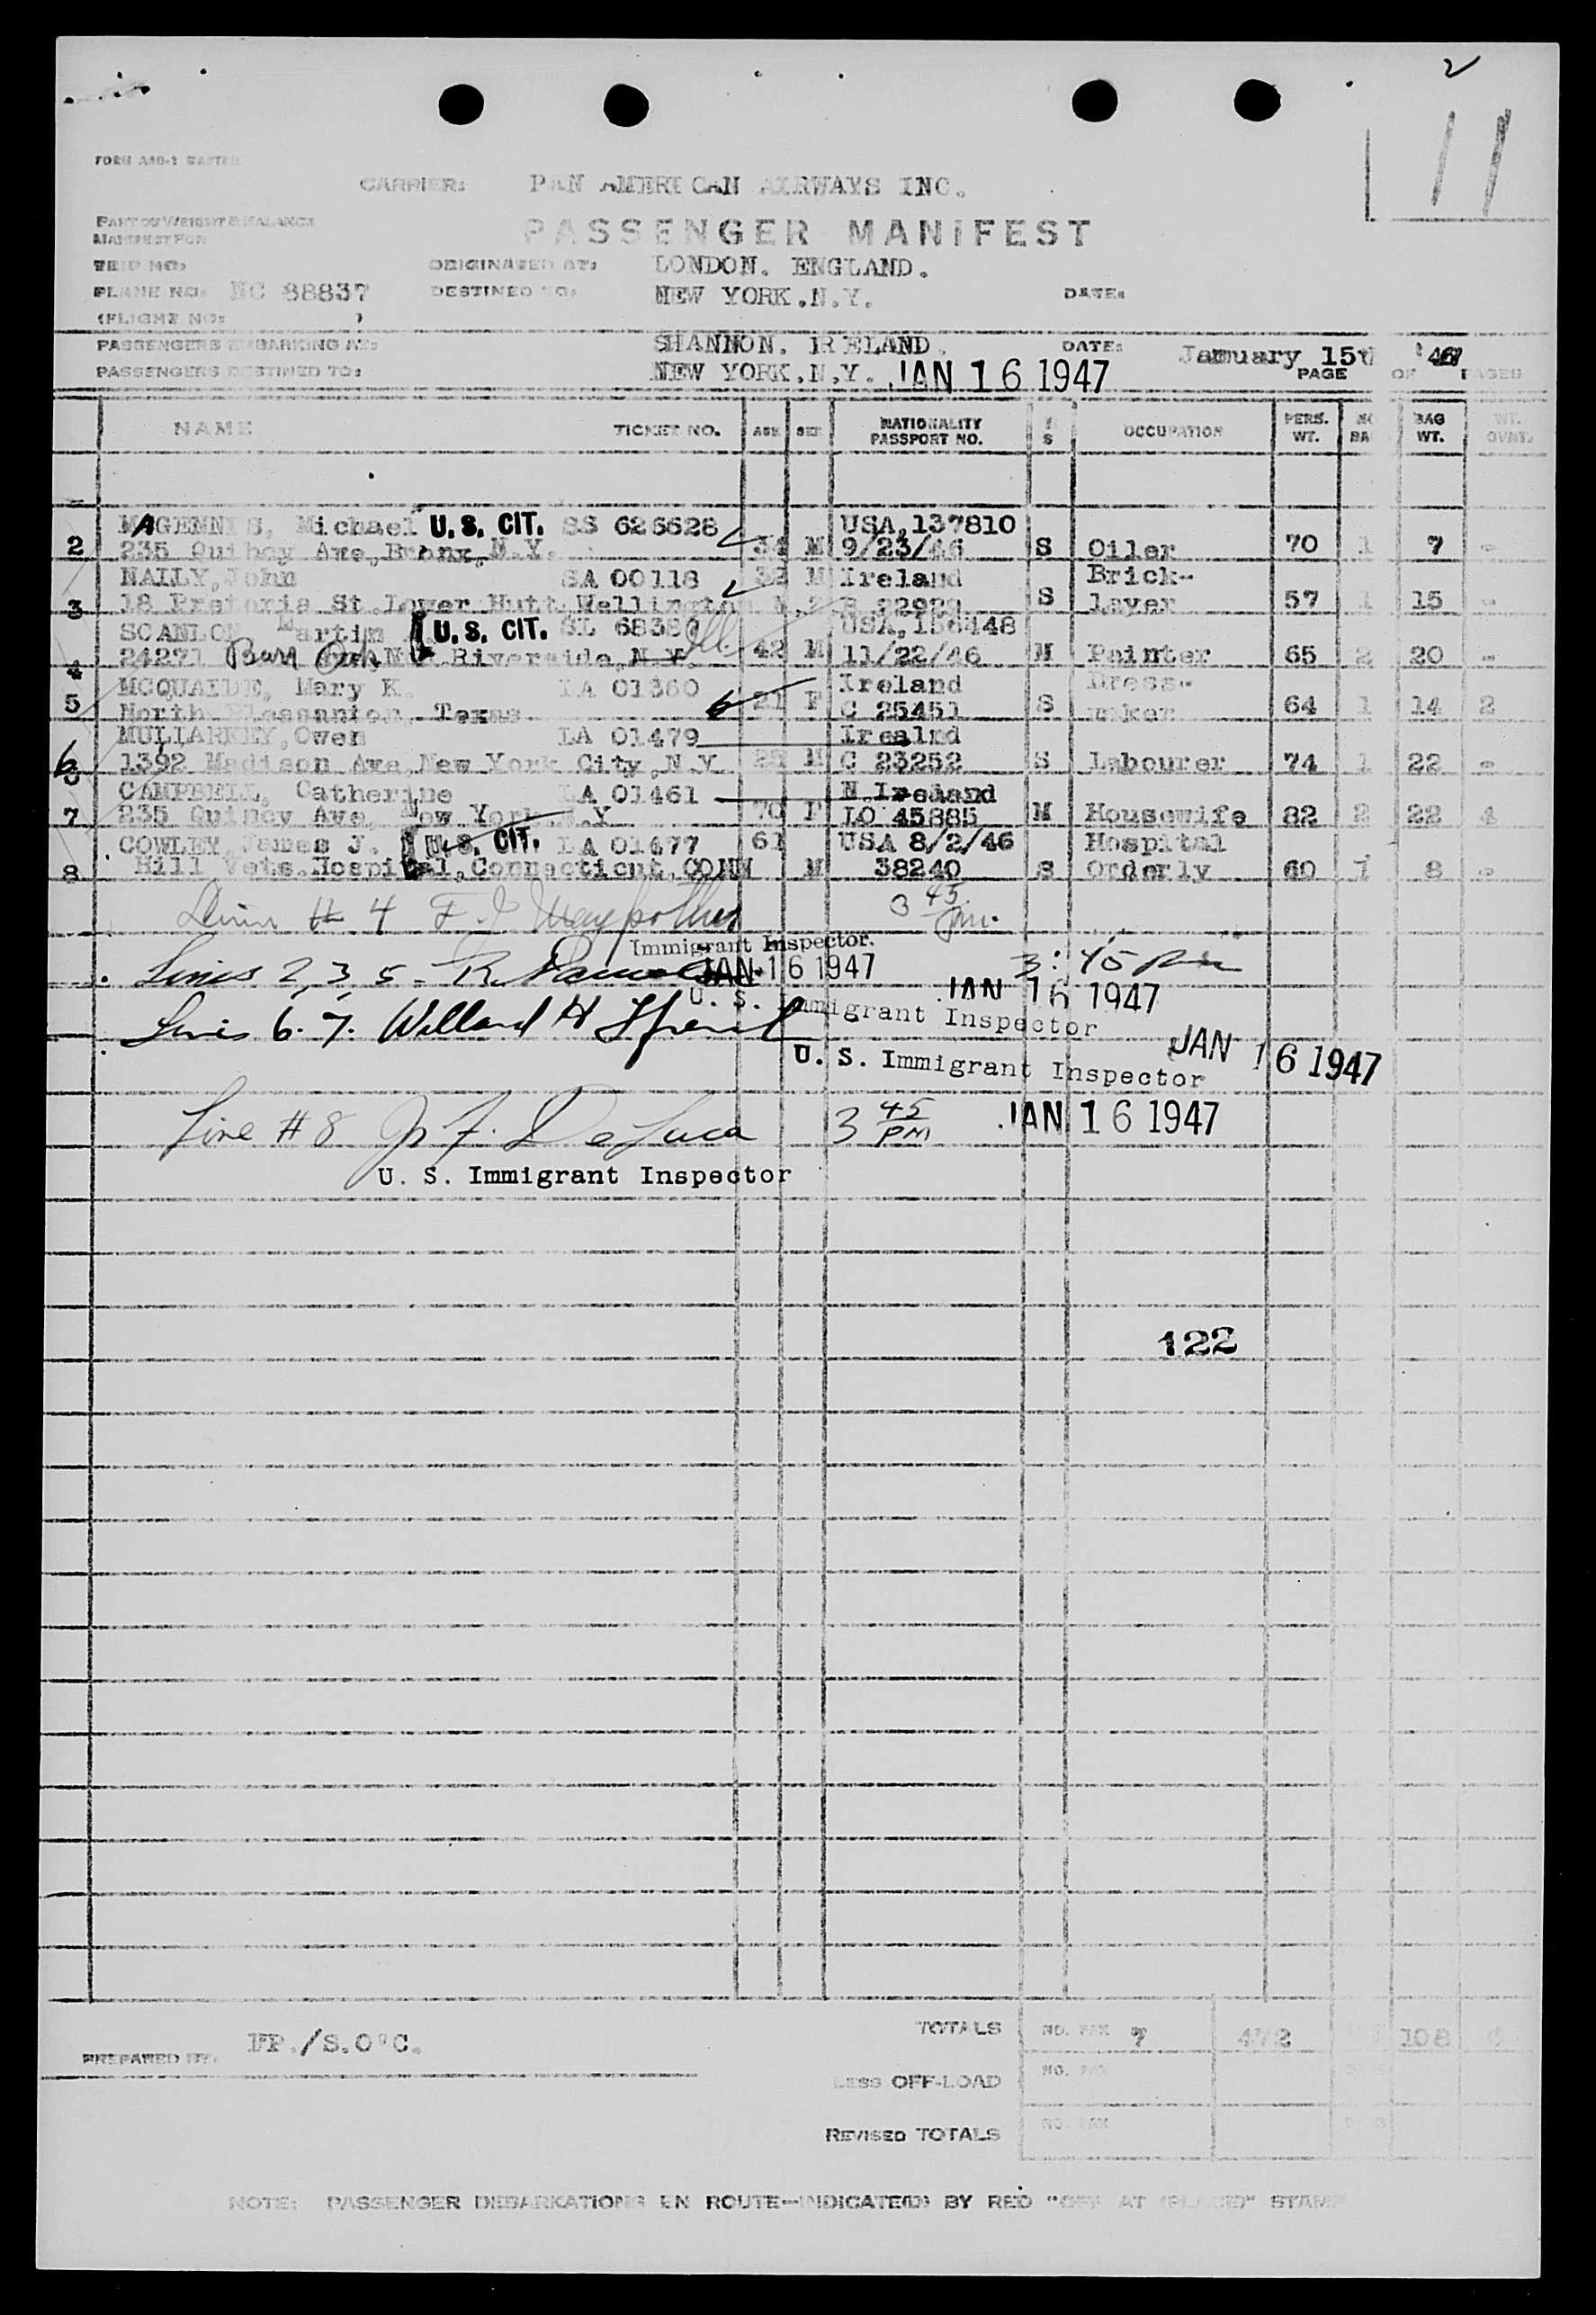 2
11
FORM
CARRIER: PAN AMERICAN AIRWAYS INC.
PART OF WEIGHT & BALANCE
MANIFEST FOR
PASSENGER MANIFEST
TRIP NO: ORIGINATED AT: LONDON. ENGLAND.
PLANE NO: NC 88837 DESTINED TO: NEW YORK.N.Y. DATE:
(FLIGHT NO: )
PASSENGERS EMBARKING AT: SHANNON. IRELAND. DATE: January 15th
PASSENGERS DESTINED TO: NEW YORK.N.Y. JAN 16 1947 PAGE OF PAGES
NAME TICKET NO. AGE SEX NATIONALITY PASSPORT NO. S OCCUPATION PERS. WT. NO BAG WT.
MAGENNIS, Michael U.S. CIT. SS 626628 USA,137810
2 235 Quincy Ave,Bronx,N.Y. 34 M 9/23/46 S Oiler 70 1 7 -
NALLY,John SA 00118 32 M Ireland Brick-
3 18 Pretoria St.Lower Hutt,Wellington S layer 57 1 15 -
SCANLON Martin U.S. CIT. USA,
4 24271 Riverside,N.Y. 42 M 11/22/46 M Painter 65 2 20 -
MCQUAIDE, Mary K. LA 01360 Ireland Dress-
5 North Pleasanton, Texas 21 F C 25451 S maker 64 1 14 2
MULLARKEY,Owen LA 01479 Irealnd
6 1392 Madison Ave,New York City,N.Y M C 23252 S Labourer 74 1 22 -
CAMPBELL, Catherine LA 01461 N.Ireland
7 235 Quincy Ave, New York.N.Y 70 F LO 45885 M Housewife 82 2 22 4
COWLEY,James J. U.S. CIT. LA 01477 61 USA 8/2/46 Hospital
8 Hill Vets.Hospital,Connecticut,CONN M 38240 S Orderly 60 1 8 -
# 4 F. J. 3 45 pm.
Immigrant Inspector.
Lines 2, 3, 5 - R. JAN 16 1947 3:45 pm
U. S. Immigrant Inspector JAN 16 1947
Lines 6. 7. Willard H
U. S. Immigrant Inspector JAN 16 1947
Line # 8 J. F. DeLuca 3 45 PM JAN 16 1947
U. S. Immigrant Inspector
122
PREPARED BY: FP./S.O'C.
TOTALS NO. PAX 7 472 108
LESS OFF-LOAD NO. PAX
REVISED TOTALS NO. PAX
NOTE: PASSENGER DEBARKATIONS EN ROUTE—INDICATE(D) BY RED "OFF AT (PLACE)" STAMP